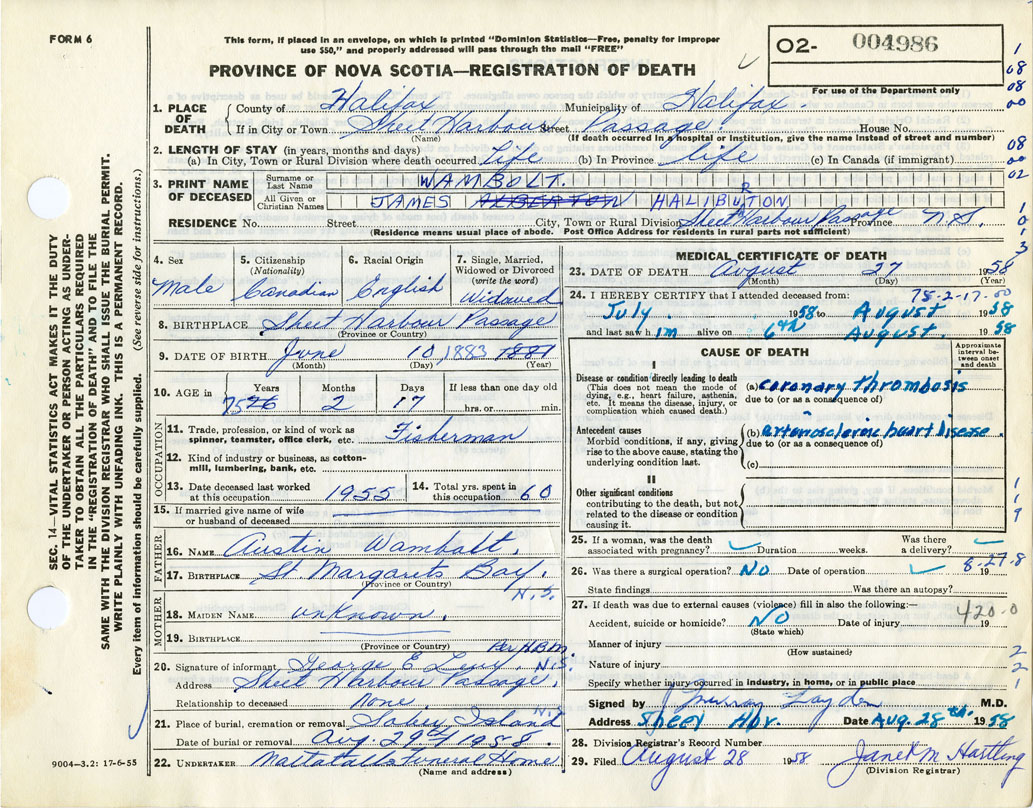 FORM 6
This form, if placed in an envelope, on which is printed "Dominion Statistics—Free, penalty for improper
use $50," and properly addressed will pass through the mail "FREE"
O2- 004986
For use of the Department only
PROVINCE OF NOVA SCOTIA—REGISTRATION OF DEATH
1. PLACE OF DEATH
County of Halifax Municipality of Halifax.
If in City or Town Sheet Harbour Street Passage. House No.
(Name) (If death occurred in a hospital or institution, give the name instead of street and number)
2. LENGTH OF STAY (in years, months and days)
(a) In City, Town or Rural Division where death occurred Life (b) In Province life (c) In Canada (if immigrant)
3. PRINT NAME OF DECEASED
Surname or Last Name WAMBOLT.
All Given or Christian Names JAMES HALIBURTON
RESIDENCE No. Street City, Town or Rural Division Sheet Harbour Passage Province N.S.
(Residence means usual place of abode. Post Office Address for residents in rural parts not sufficient)
4. Sex Male
5. Citizenship (Nationality) Canadian
6. Racial Origin English
7. Single, Married, Widowed or Divorced (write the word) Widowed
8. BIRTHPLACE Sheet Harbour Passage
(Province or Country)
9. DATE OF BIRTH June 10, 1883 1881
(Month) (Day) (Year)
10. AGE in Years 75 76 Months 2 Days 17 If less than one day old hrs. or min.
OCCUPATION
11. Trade, profession, or kind of work as spinner, teamster, office clerk, etc. Fisherman
12. Kind of industry or business, as cotton-mill, lumbering, bank, etc.
13. Date deceased last worked at this occupation 1955
14. Total yrs. spent in this occupation 60
15. If married give name of wife or husband of deceased
FATHER
16. NAME Austin Wambolt.
17. BIRTHPLACE St. Margarets Bay, N.S.
(Province or Country)
MOTHER
18. MAIDEN NAME unknown.
19. BIRTHPLACE
(Province or Country)
Per H.B.M.
20. Signature of informant George E Levy, N.S.
Address Sheet Harbour Passage,
Relationship to deceased None
21. Place of burial, cremation or removal Island N.S.
Date of burial or removal Aug. 29th 1958.
22. UNDERTAKER Mattatalls Funeral Home
(Name and address)
MEDICAL CERTIFICATE OF DEATH
23. DATE OF DEATH August 27 1958
(Month) (Day) (Year)
75-2-17-00
24. I HEREBY CERTIFY that I attended deceased from:
July 1958 to August 1958
and last saw h im alive on 6th August 1958
CAUSE OF DEATH
Approximate interval between onset and death
I
Disease or condition directly leading to death
(This does not mean the mode of dying, e.g., heart failure, asthenia, etc. It means the disease, injury, or complication which caused death.)
(a) coronary thrombosis
due to (or as a consequence of)
Antecedent causes
Morbid conditions, if any, giving rise to the above cause, stating the underlying condition last.
(b) arteriosclerotic heart disease.
due to (or as a consequence of)
(c)
II
Other significant conditions
contributing to the death, but not related to the disease or condition causing it.
25. If a woman, was the death associated with pregnancy? Duration weeks. Was there a delivery?
26. Was there a surgical operation? NO Date of operation 19
8-27-8
State findings Was there an autopsy?
27. If death was due to external causes (violence) fill in also the following:—
420-0
Accident, suicide or homicide? NO Date of injury 19
(State which)
Manner of injury
(How sustained)
Nature of injury
Specify whether injury occurred in industry, in home, or in public place
Signed by J Murray Layden M.D.
Address Sheet Hbr. Date Aug. 28th. 1958
28. Division Registrar's Record Number
29. Filed August 28 1958 Janet M. Hartling
(Division Registrar)
9004—3.2: 17-6-55
SEC. 14—VITAL STATISTICS ACT MAKES IT THE DUTY
OF THE UNDERTAKER OR PERSON ACTING AS UNDER-
TAKER TO OBTAIN ALL THE PARTICULARS REQUIRED
IN THE "REGISTRATION OF DEATH" AND TO FILE THE
SAME WITH THE DIVISION REGISTRAR WHO SHALL ISSUE THE BURIAL PERMIT.
WRITE PLAINLY WITH UNFADING INK. THIS IS A PERMANENT RECORD.
Every item of information should be carefully supplied. (See reverse side for instructions.)
1
08
08
00
08
00
02
1
0
1
3
1
1
9
2
2
1